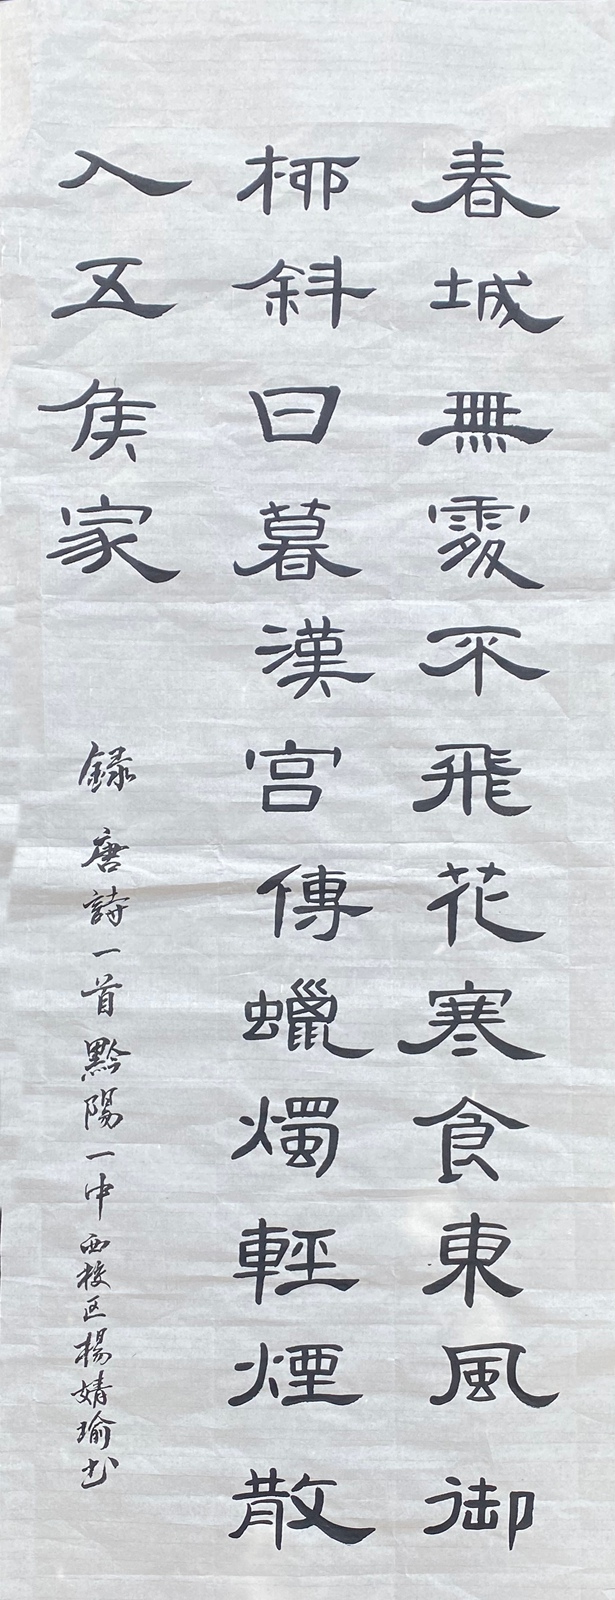 春城無處不飛花寒食東風御
柳斜日暮漢宮傳蠟燭輕煙散
入五侯家
録唐詩一首黔陽一中西校区楊婧瑜书